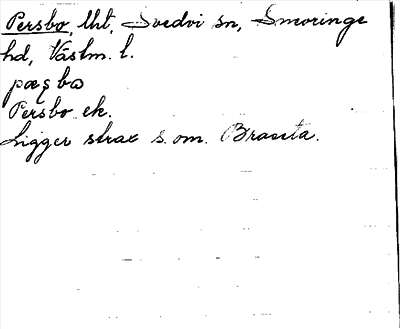 Persbo, lht, Svedvi sn, Snevringe
hd, Västm. l.
pæʂbω
Persbo ek.
Ligger strax s. om. Brasta.